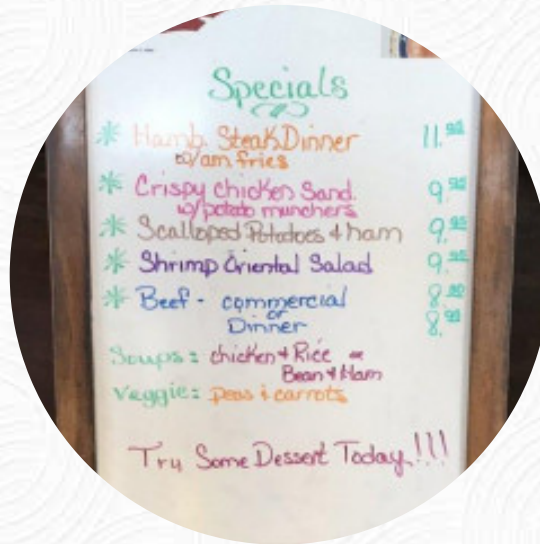 Specials
* Hamb. Steak Dinner 11.
w/am fries
* Crispy chicken Sand. 9.
w/potato munchers
* Scalloped Potatoes & ham 9.
* Shrimp Oriental Salad 9.
* Beef - commercial 8.
or
Dinner 8.
Soups: chicken & Rice or
Bean & Ham
Veggie: peas & carrots
Try Some Dessert Today!!!